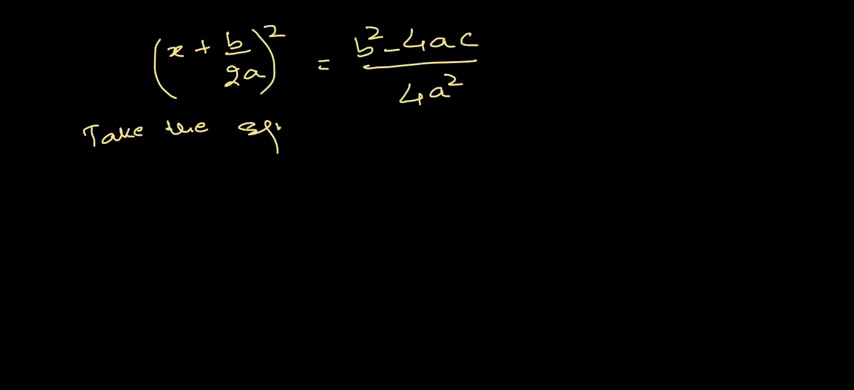 (x + b/2a)² = b² - 4ac / 4a²
Take the sq